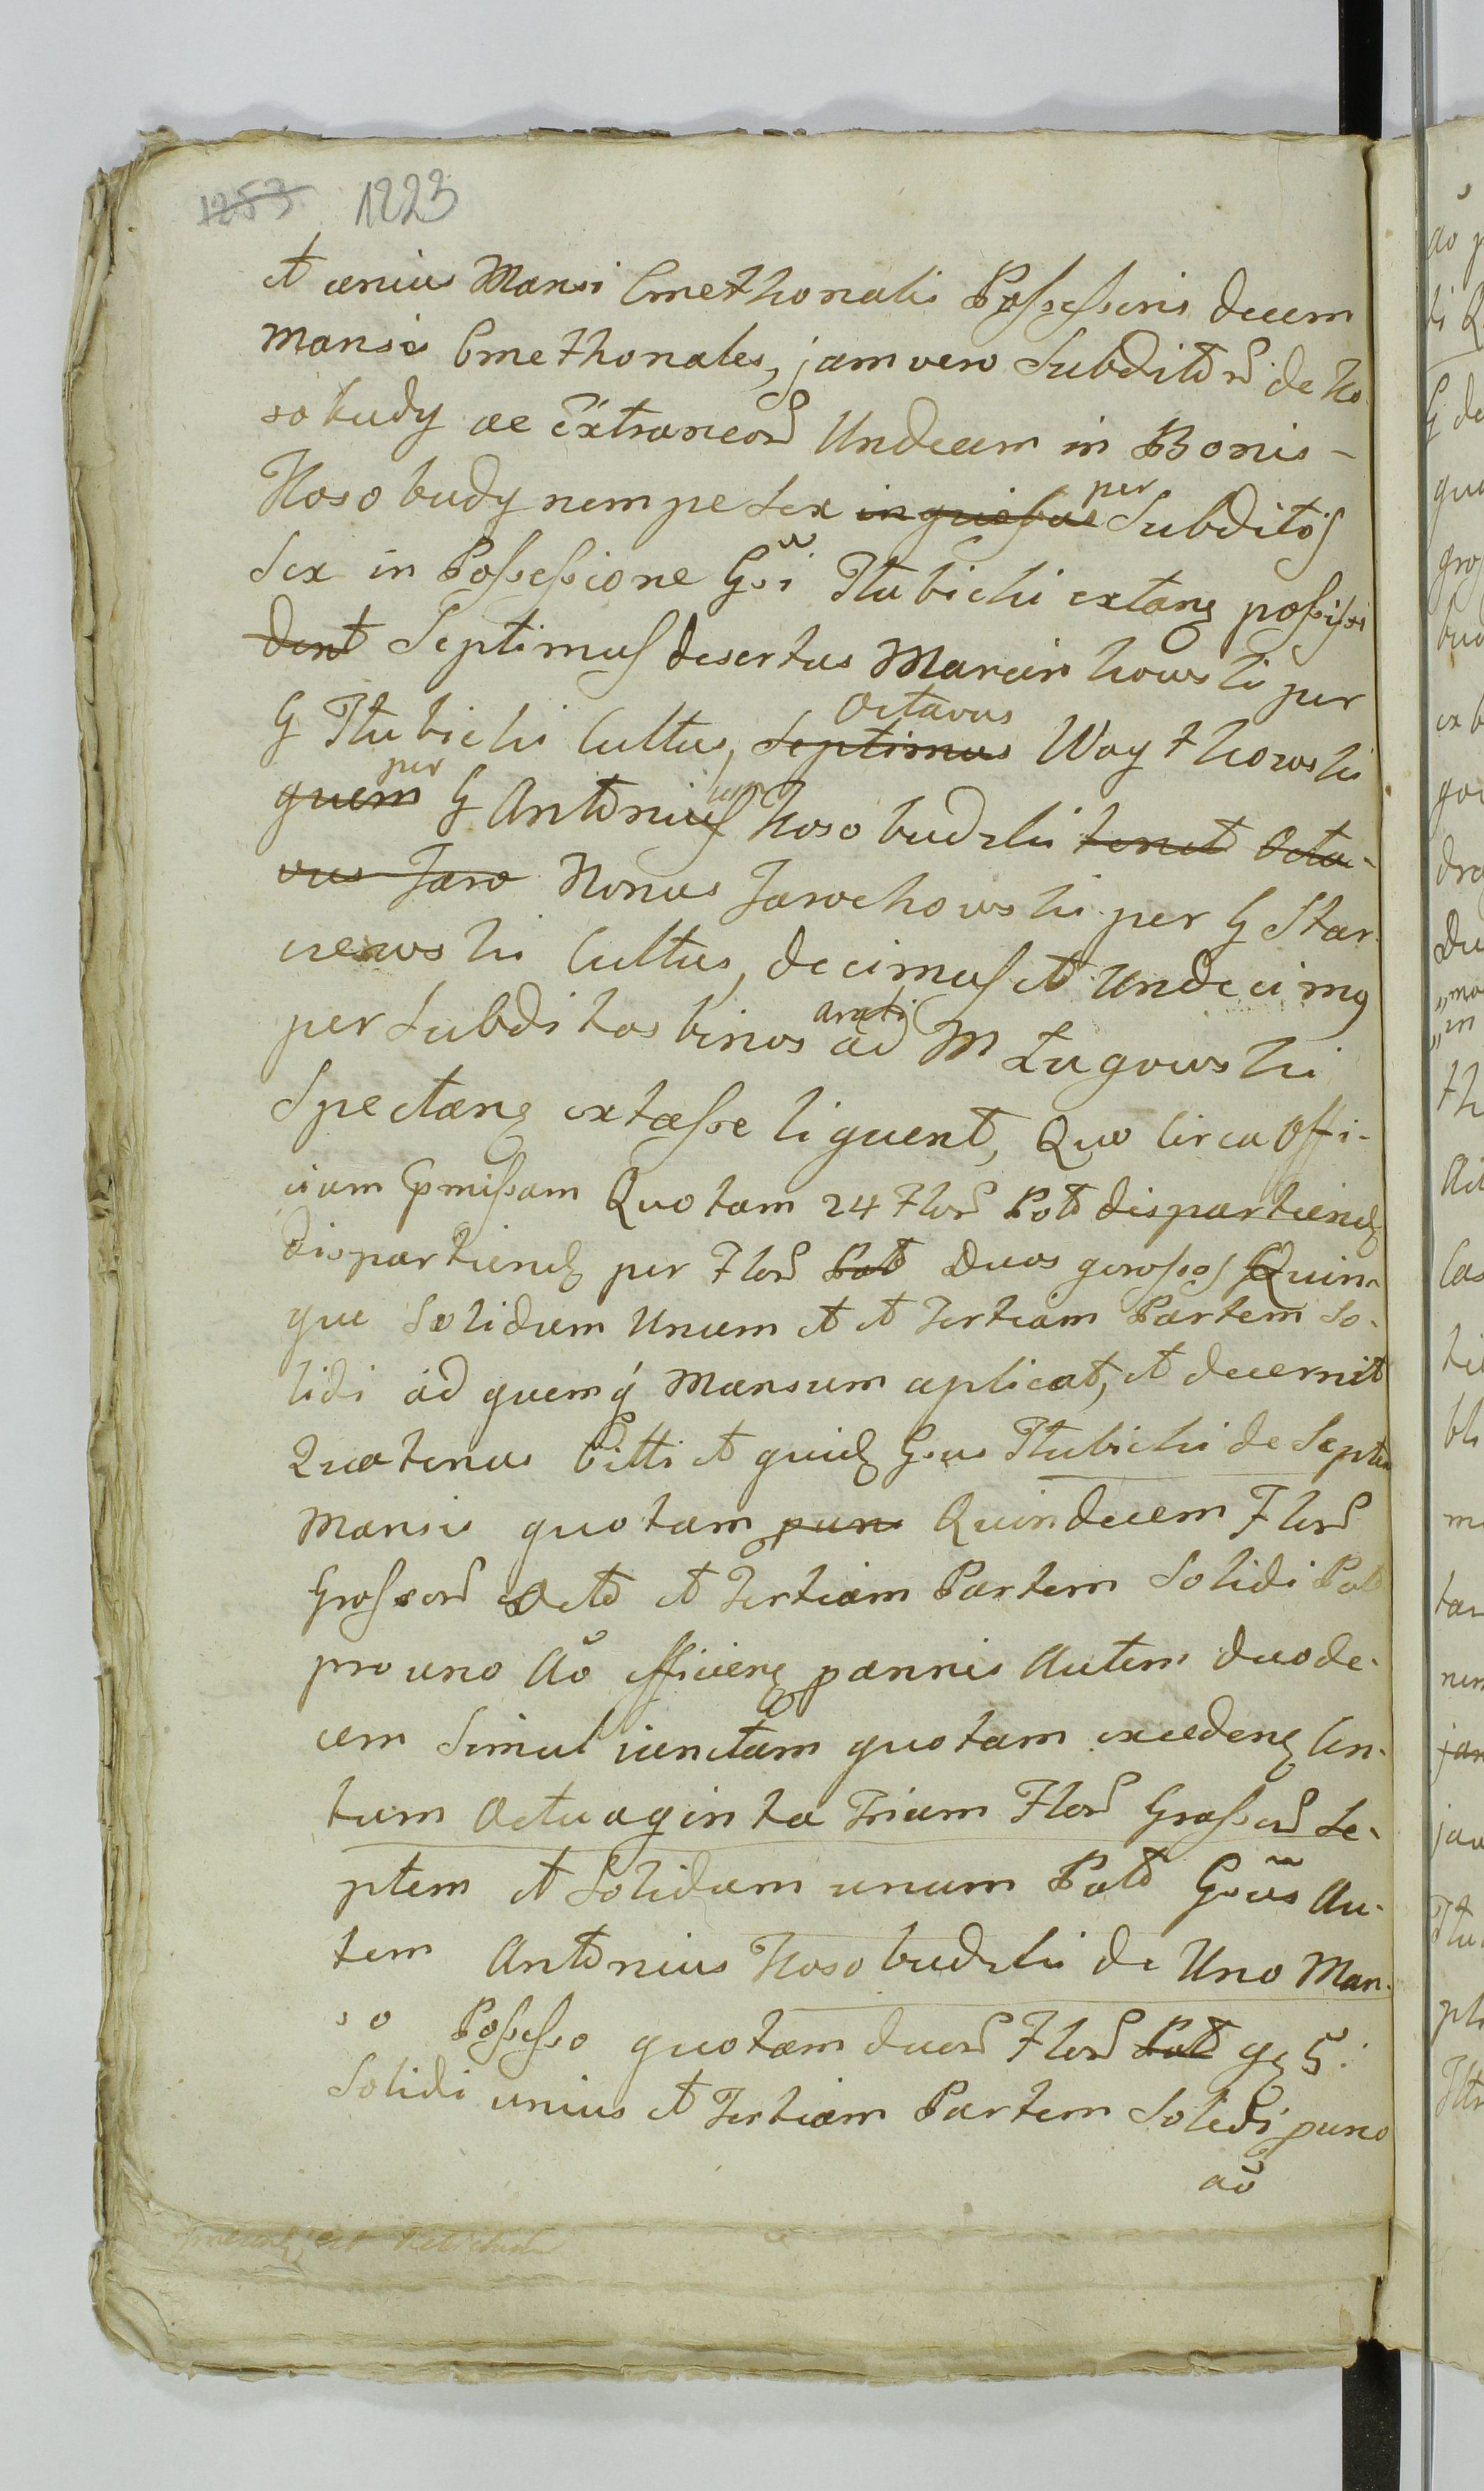 1253 1223
et unius Mansi Cmethonalis Possessoris decem
Mansos Cmethonales, jam vero Subditorũ de Ko
sobudy ac extraneorũ Undecim in Bonis -
Kosobudy nempe Sex in quibus per Subditos
Sex in Possessione Gsi Tłubicki extanꝫ possessi
dent Septimus desertus Marcinkowski per
G Tłubicki Cultus, Septimus Octavus Woytkowski
quem per G Antonius um Kosobudzki tenet Octa-
vus Jaro Nonus Jarockowski per G Star
czewski Cultus, decimus et Undecimꝰ
per Subditos binos arati ad M Ługowski
Spectanꝫ extasse liquent, Quo Circa Offi-
cium p̃missam Quotam 24 Florũ Polo dispartiendꝫ
dispartiendꝫ per Florũ Polo Duos grossos Quin-
que Solidum Unum et et Tertiam Partem So-
lidi ad quemq́ Mansum aplicat, et decernit
Quatenus Citti et quidꝫ Gsus Tłubicki de Septem
Mansis quotam pun Quindecem Florũ
Grossorũ Octo et Tertiam Partem Solidi Pol
pro uno Ao efficienꝫ pannis Autem duode-
cem Simul iunctam quotam excedenꝫ Cen-
tum Octuaginta Trium Florũ Grossorũ Se-
ptem et Solidum unum Polo Gsus Au-
tem Antonius Kosobudzki de Uno Man-
so Possesso quotam duorũ Florũ Polo gꝫ 5.
Solidi unius et Tertiam Partem Solidi puno
ao